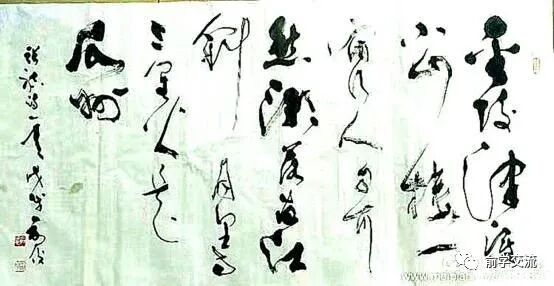 金陵津渡
小山楼一
宿行人自可
愁潮落夜江
斜月里两
三星火是
瓜洲
张祜诗一首戊戌